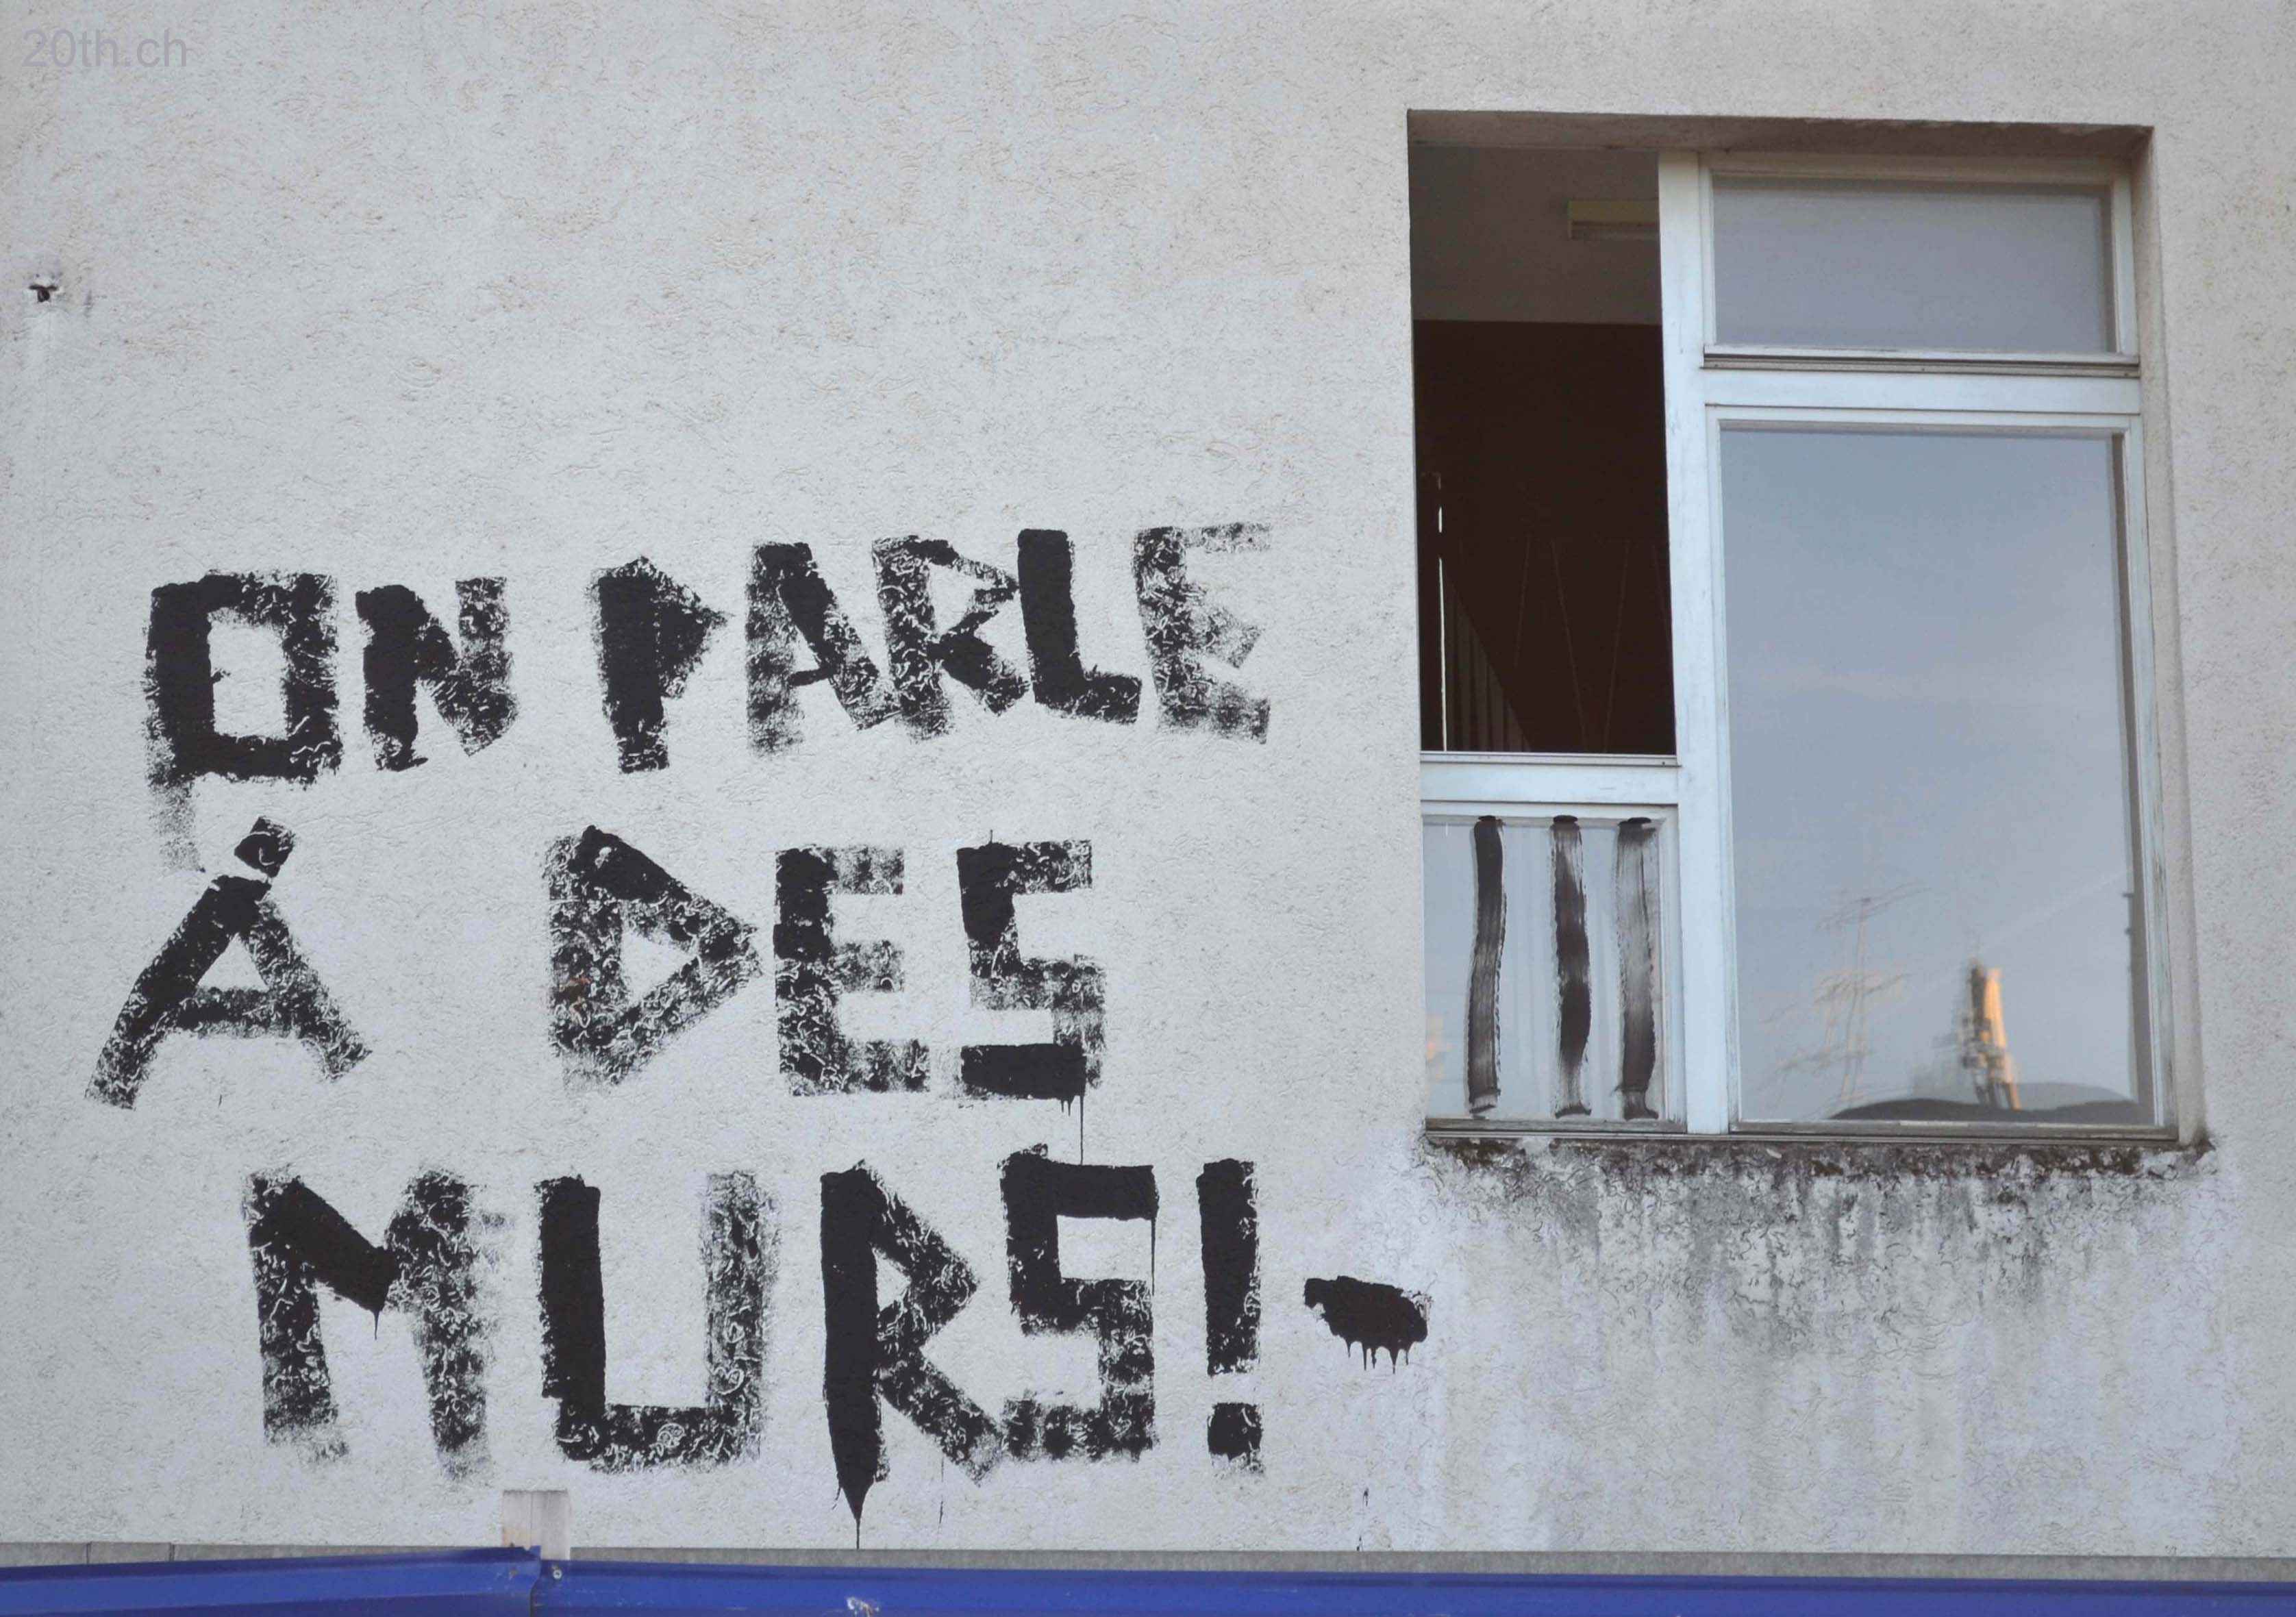 20th.ch
ON PARLE
Á DES
MURS!